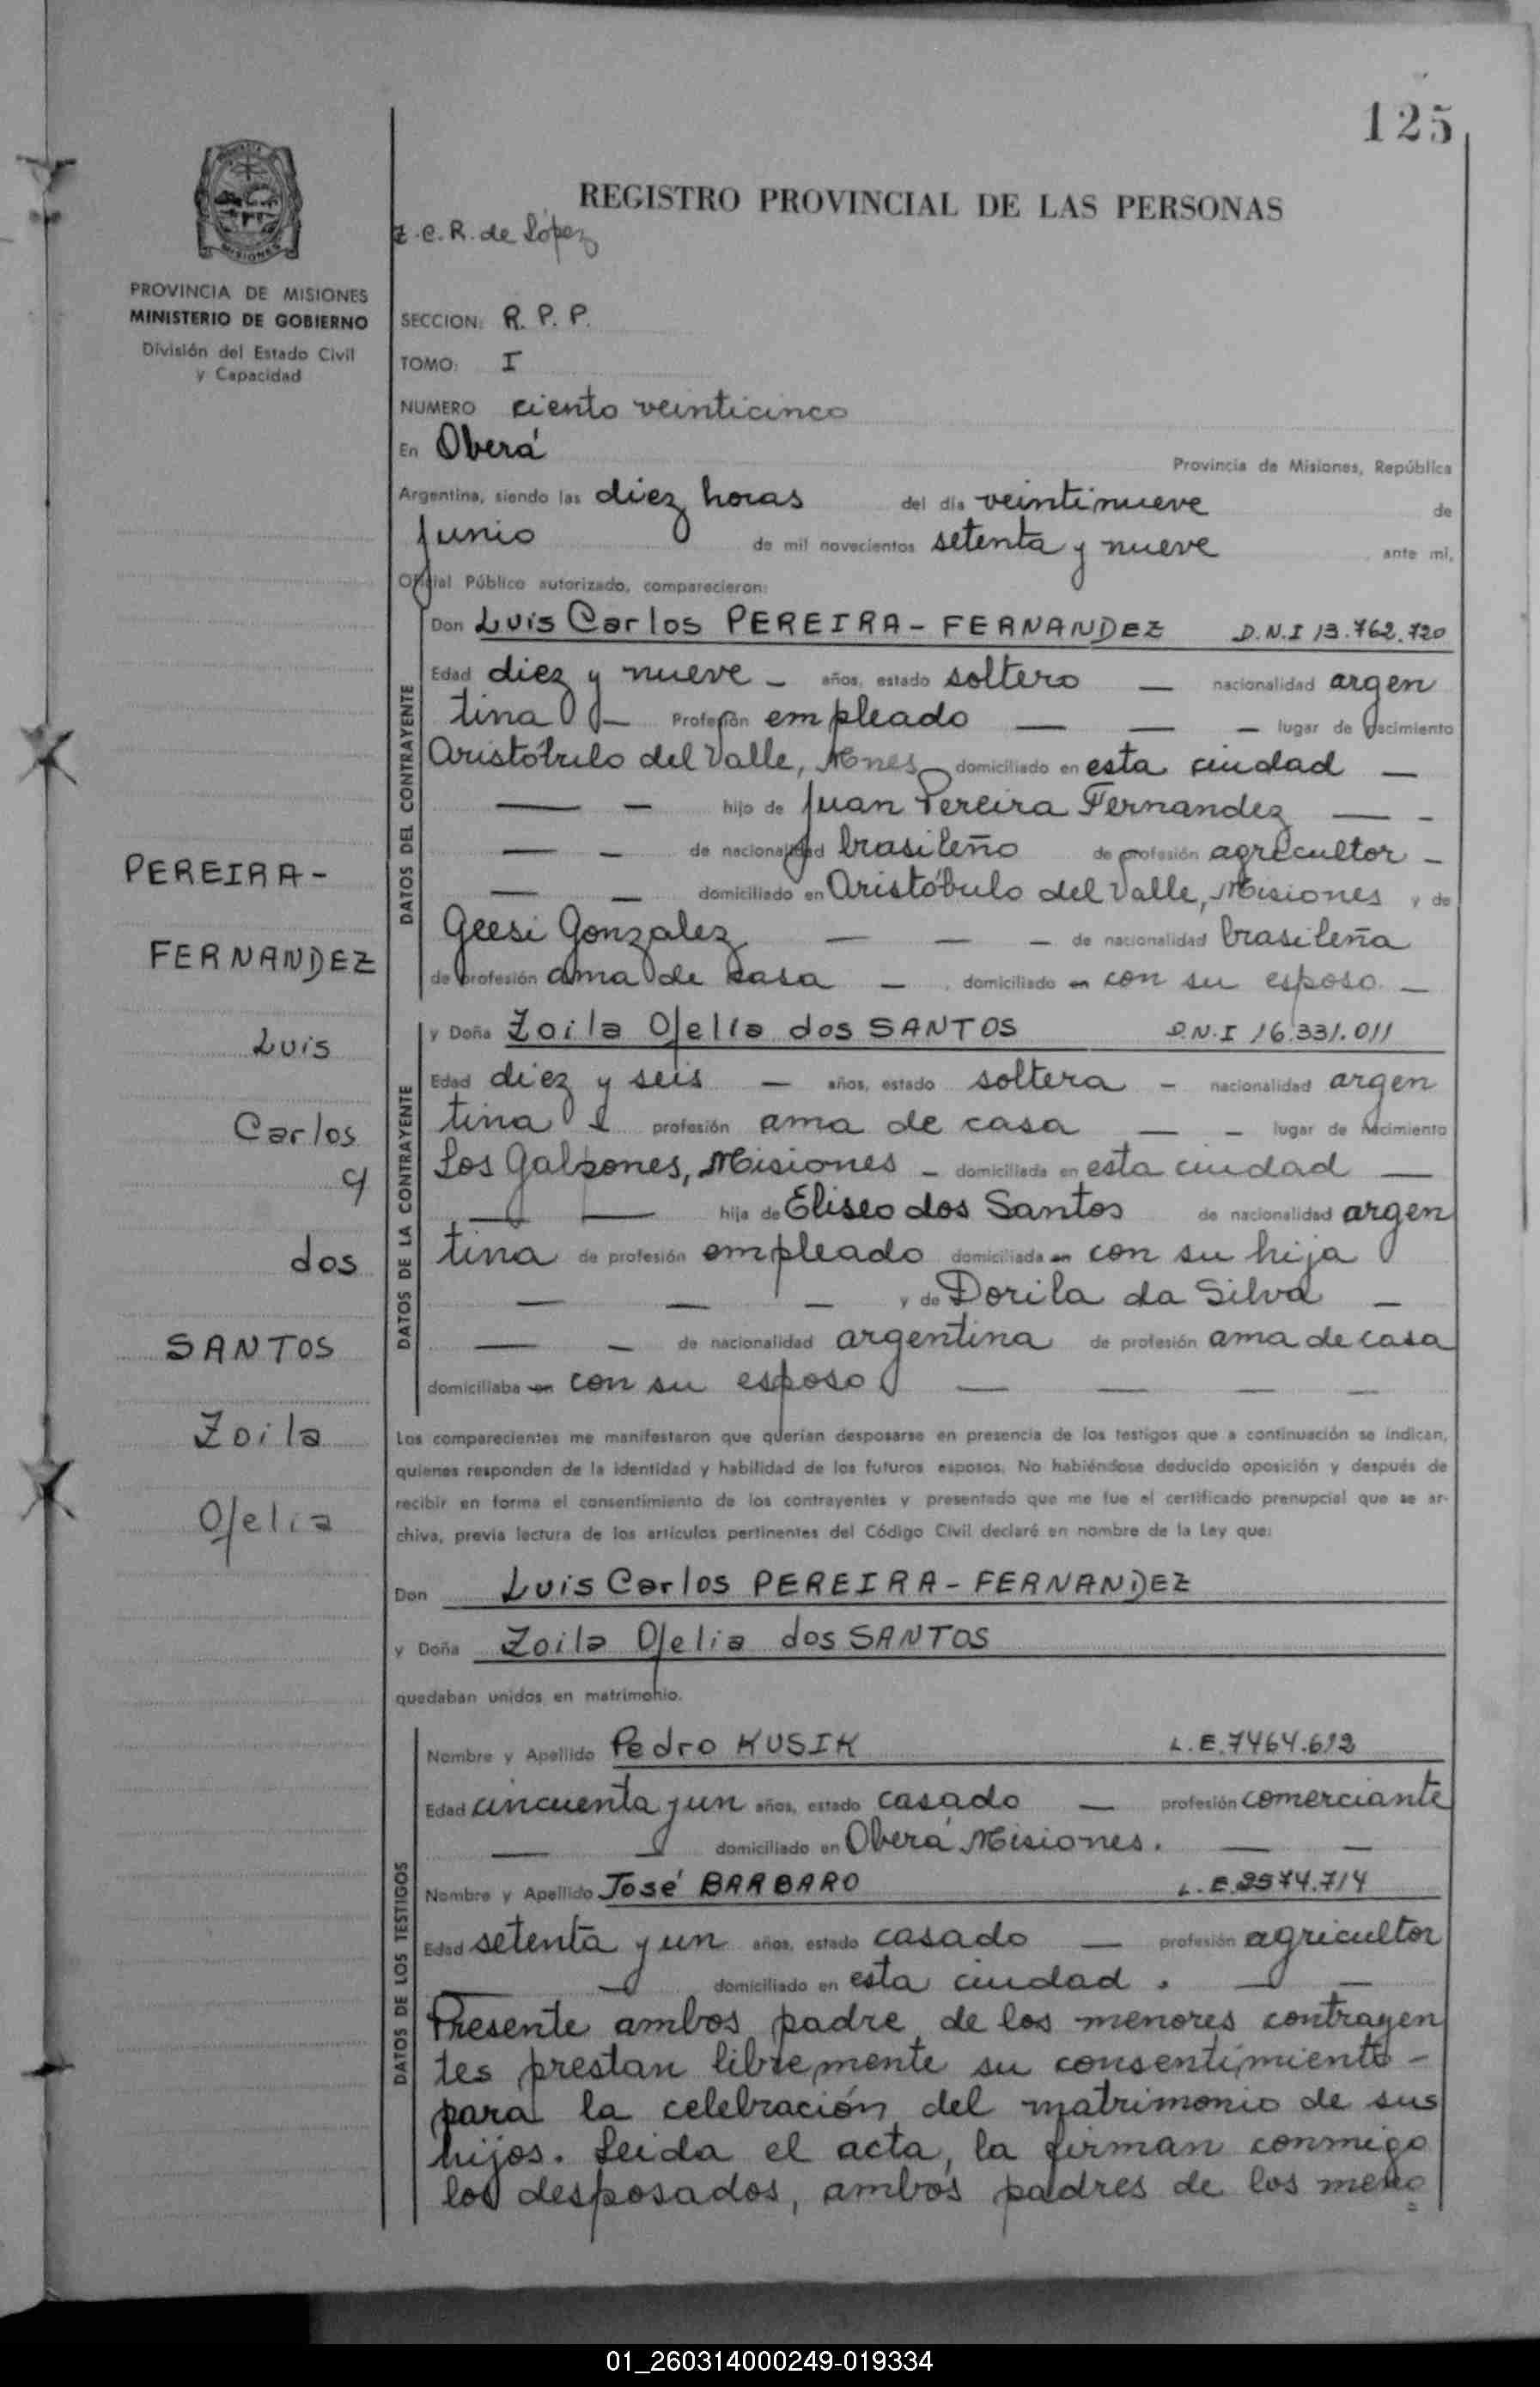 125
REGISTRO PROVINCIAL DE LAS PERSONAS
Z.C.R. de López
MISIONES
PROVINCIA DE MISIONES
MINISTERIO DE GOBIERNO
División del Estado Civil
y Capacidad
SECCION: R. P. P.
TOMO: I
NUMERO ciento veinticinco
En Oberá
Provincia de Misiones, República
Argentina, siendo las diez horas del día veintinueve de
Junio de mil novecientos setenta y nueve ante mí,
Oficial Público autorizado, comparecieron:
DATOS DEL CONTRAYENTE
Don Luis Carlos PEREIRA - FERNANDEZ D.N.I 13.762.720
Edad diez y nueve - años, estado soltero — nacionalidad argen
tina — Profesión empleado — — — lugar de nacimiento
Aristóbulo del Valle, Mnes domiciliado en esta ciudad —
— - hijo de Juan Pereira Fernandez — -
— - de nacionalidad brasileño de profesión agricultor -
— — domiciliado en Aristóbulo del Valle, Misiones y de
Geesi Gonzalez — — — de nacionalidad brasileña
de profesión ama de casa — domiciliado en con su esposo —
DATOS DE LA CONTRAYENTE
y Doña Zoila Ofelia dos SANTOS D.N.I 16.331.011
Edad diez y seis — años, estado soltera - nacionalidad argen
tina profesión ama de casa — - lugar de nacimiento
Los Galpones, Misiones - domiciliada en esta ciudad —
— — hija de Eliseo dos Santos de nacionalidad argen
tina de profesión empleado domiciliada en con su hija
— — — y de Dorila da Silva —
— — de nacionalidad argentina de profesión ama de casa
domiciliaba en con su esposo — — — —
Los comparecientes me manifestaron que querían desposarse en presencia de los testigos que a continuación se indican,
quienes responden de la identidad y habilidad de los futuros esposos. No habiéndose deducido oposición y después de
recibir en forma el consentimiento de los contrayentes y presentado que me fue el certificado prenupcial que se ar-
chiva, previa lectura de los artículos pertinentes del Código Civil declaré en nombre de la Ley que:
Don Luis Carlos PEREIRA - FERNANDEZ
y Doña Zoila Ofelia dos SANTOS
quedaban unidos en matrimonio.
DATOS DE LOS TESTIGOS
Nombre y Apellido Pedro KUSIK L.E.7464.612
Edad cincuenta y un años, estado casado — profesión comerciante
— domiciliado en Oberá Misiones. — —
Nombre y Apellido José BARBARO L.E.2574.714
Edad setenta y un años, estado casado — profesión agricultor
— — domiciliado en esta ciudad. — —
Presente ambos padre de los menores contrayen
tes prestan libremente su consentimiento -
para la celebración del matrimonio de sus
hijos. Leida el acta, la firman conmigo
los desposados, ambos padres de los meno
=
PEREIRA-
FERNANDEZ
Luis
Carlos
y
dos
SANTOS
Zoila
Ofelia
01_260314000249-019334